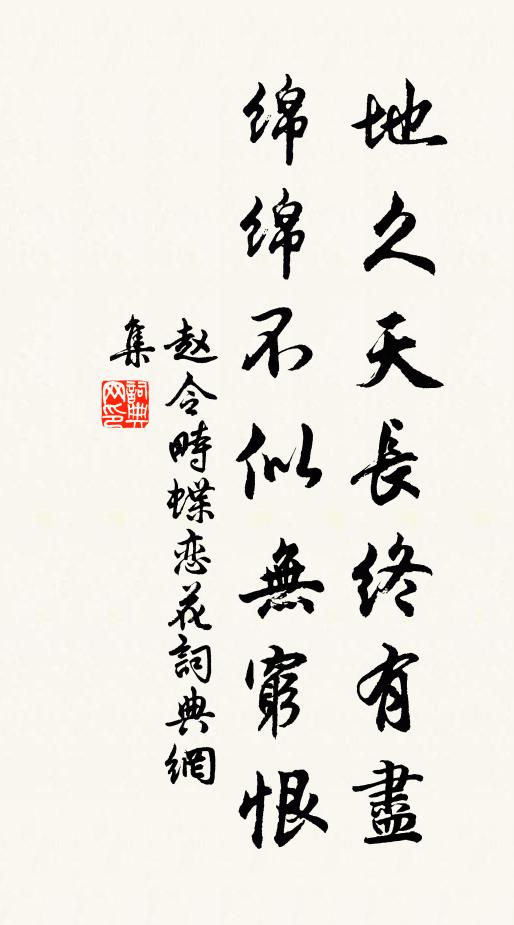 地久天長終有盡
绵绵不似無窮恨
赵令畤蝶恋花詞典網
集
詞典网印